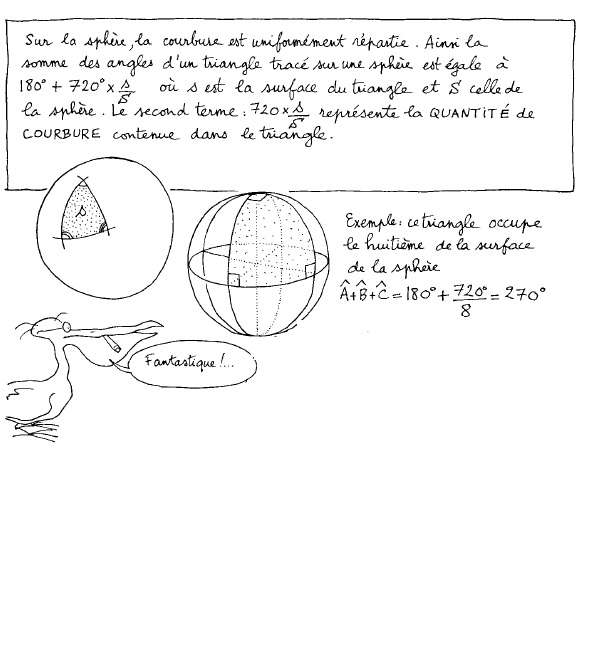 Sur la sphère, la courbure est uniformément répartie. Ainsi la
somme des angles d'un triangle tracé sur une sphère est égale à
180° + 720° x s/S où s est la surface du triangle et S celle de
la sphère. Le second terme : 720 x s/S représente la QUANTITÉ de
COURBURE contenue dans le triangle.
s
Exemple : ce triangle occupe
le huitième de la surface
de la sphère
Â+B̂+Ĉ = 180° + 720°/8 = 270°
Fantastique !...